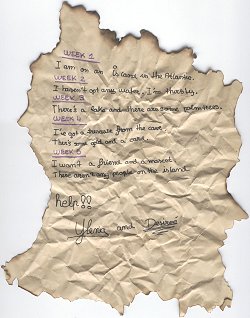 WEEK 1
I am on an island in the Atlantic.
WEEK 2
I haven't got any water, I'm thirsty.
WEEK 3
There's a lake and there are some palmtrees.
WEEK 4
I've got a treasure from the cave
There's some gold and a card.
WEEK 5
I want a friend and a mascot
There aren't any people on the island.
help!!
Ylenia and Desireé